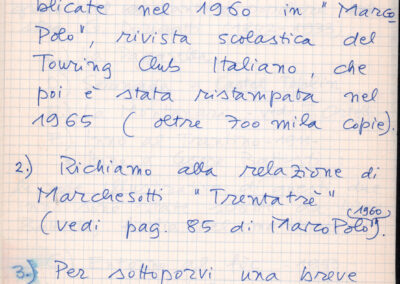 blicate nel 1960 in "Marco
Polo", rivista scolastica del
Touring Club Italiano, che
poi è stata ristampata nel
1965 (oltre 700 mila copie).
2.) Richiamo alla relazione di
Marchesotti "Trentatrè"
(vedi pag. 85 di Marco Polo" (1960)).
3.) Per sottoporvi una breve